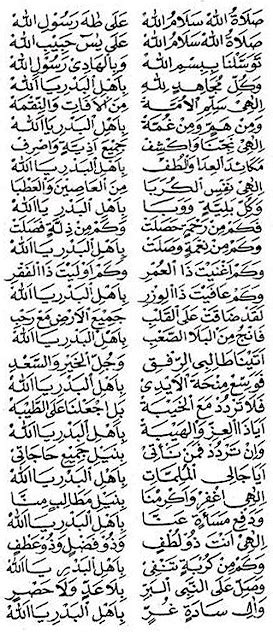 صَلَاةُ اللهْ سَلَامُ اللهْ عَلَى طٰهَ رَسُوْلِ اللهْ
صَلَاةُ اللهْ سَلَامُ اللهْ عَلَى يٰسٓ حَبِيْبِ اللهْ
تَوَسَّلْنَا بِبِسْمِ اللهْ وَبِالْهَادِيْ رَسُوْلِ اللهْ
وَكُلِّ مُجَاهِدٍ لِلهْ بِاَهْلِ الْبَدْرِ يَا اَللهْ
اِلٰهِيْ سَلِّمِ الْاُمَّةْ مِنَ الْاٰفَاتِ وَالنِّقْمَةْ
وَمِنْ هَمٍّ وَمِنْ غُمَّةْ بِاَهْلِ الْبَدْرِ يَا اَللهْ
اِلٰهِيْ نَجِّنَا وَاكْشِفْ جَمِيْعَ اَذِيَّةٍ وَاصْرِفْ
مَكَائِدَ الْعِدَا وَالْطُفْ بِاَهْلِ الْبَدْرِ يَا اَللهْ
اِلٰهِيْ نَفِّسِ الْكُرَبَا مِنَ الْعَاصِيْنَ وَالْعَطْبَا
وَكُلِّ بَلِيَّةٍ وَوَبَا بِاَهْلِ الْبَدْرِ يَا اَللهْ
فَكَمْ مِنْ رَحْمَةٍ حَصَلَتْ وَكَمْ مِنْ ذِلَّةٍ فَصَلَتْ
وَكَمْ مِنْ نِعْمَةٍ وَصَلَتْ بِاَهْلِ الْبَدْرِ يَا اَللهْ
وَكَمْ اَغْنَيْتَ ذَا الْعُمْرِ وَكَمْ اَوْلَيْتَ ذَا الْفَقْرِ
وَكَمْ عَافَيْتَ ذَا الْوِزْرِ بِاَهْلِ الْبَدْرِ يَا اَللهْ
لَقَدْ ضَاقَتْ عَلَى الْقَلْبِ جَمِيْعُ الْاَرْضِ مَعْ رَحْبِ
فَانْجِ مِنَ الْبَلَا الصَّعْبِ بِاَهْلِ الْبَدْرِ يَا اَللهْ
اَتَيْنَا طَالِبِى الرِّفْقِ وَجُلِّ الْخَيْرِ وَالسَّعْدِ
فَوَسِّعْ مِنْحَةَ الْاَيْدِيْ بِاَهْلِ الْبَدْرِ يَا اَللهْ
فَلَا تَرْدُدْ مَعَ الْخَيْبَةْ بَلِ اجْعَلْنَا عَلَى الطَّيْبَةْ
اَيَا ذَا الْعِزِّ وَالْهَيْبَةْ بِاَهْلِ الْبَدْرِ يَا اَللهْ
وَاِنْ تَرْدُدْ فَمَنْ نَأْتِيْ بِنَيْلِ جَمِيْعِ حَاجَاتِيْ
اَيَا جَالِى الْمُلِمَّاتِ بِاَهْلِ الْبَدْرِ يَا اَللهْ
اِلٰهِيْ اغْفِرْ وَاَكْرِمْنَا بِنَيْلِ مَطَالِبٍ مِنَّا
وَدَفْعِ مَسَاءَةٍ عَنَّا بِاَهْلِ الْبَدْرِ يَا اَللهْ
اِلٰهِيْ اَنْتَ ذُوْ لُطْفٍ وَذُوْ فَضْلٍ وَذُوْ عَطْفٍ
وَكَمْ مِنْ كُرْبَةٍ تَنْفِيْ بِاَهْلِ الْبَدْرِ يَا اَللهْ
وَصَلِّ عَلَى النَّبِى الْبَرِّ بِلَا عَدٍّ وَلَا حَصْرٍ
وَاٰلِ سَادَةٍ غُرٍّ بِاَهْلِ الْبَدْرِ يَا اَللهْ